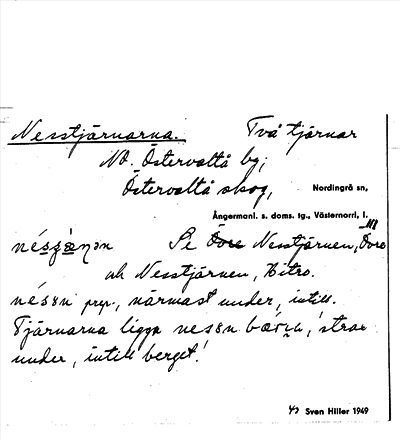 Nesstjärnarna. Två tjärnar
NO. Östervallå by;
Östervallå skog, Nordingrå sn,
Ångermanl. s. doms. tg., Västernorrl. l.
Se Övre Nesstjärnen,
och Nesstjärnen, Bitro.
prep., närmast under, intill.
Tjärnarna ligga strax
under, intill berget!
Sven Hiller 1949